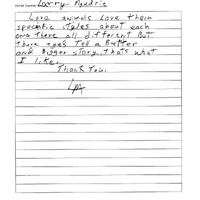 Artist's name: Larry Pendric
Love animals Love them
specific styles about each
one there all different But
there eyes Tell a Better
and Bigger story. thats what
I like.
Thank You.